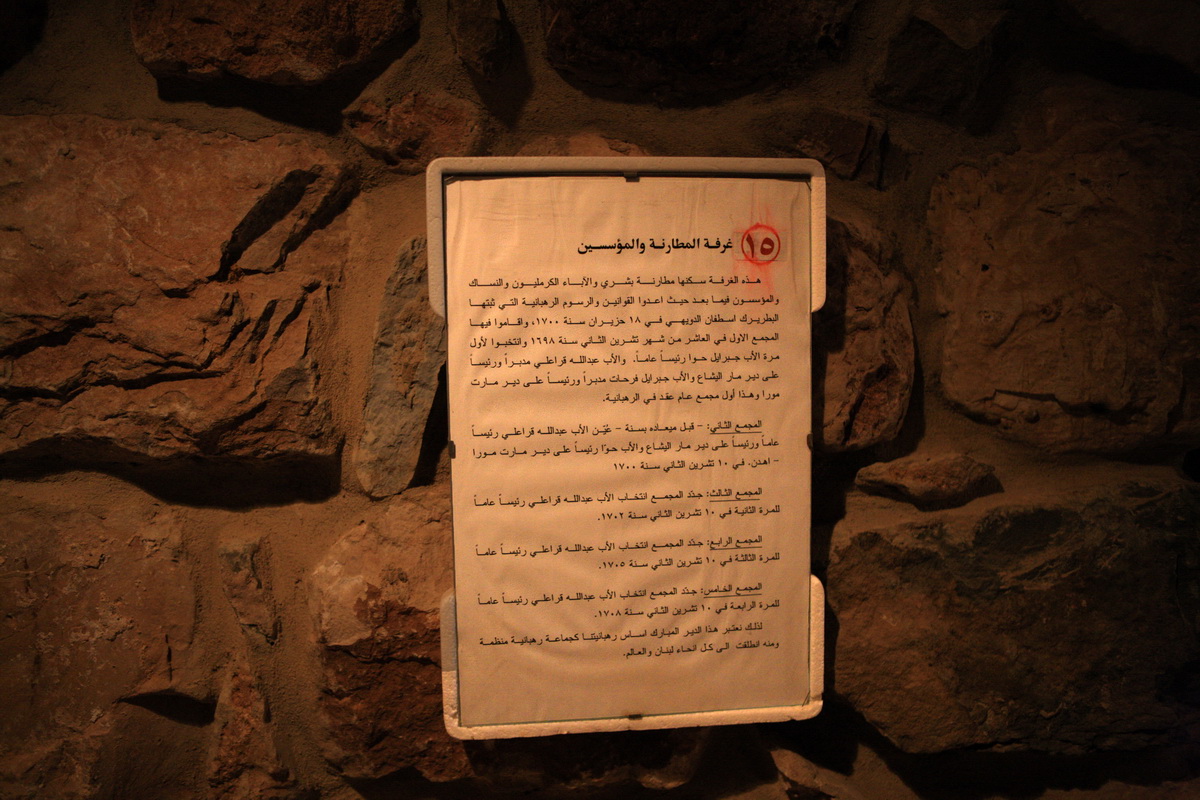 ١٥ غرفة المطارنة والمؤسسين
هذه الغرفة سكنها مطارنة بشري والآباء الكرمليون والنساك
والمؤسسون فيما بعد حيث اعدوا القوانين والرسوم الرهبانية التي ثبتها
البطريرك اسطفان الدويهي في ١٨ حزيران سنة ١٧٠٠، واقاموا فيها
المجمع الاول في العاشر من شهر تشرين الثاني سنة ١٦٩٨ وانتخبوا لأول
مرة الأب جبرايل حوا رئيساً عاماً. والأب عبدالله قراعلي مدبراً ورئيساً
على دير مار اليشاع والأب جبرايل فرحات مدبراً ورئيساً على دير مارت
مورا وهذا أول مجمع عام عقد في الرهبانية.
المجمع الثاني: - قبل ميعاده بسنة - عُيّن الأب عبدالله قراعلي رئيساً
عاماً ورئيساً على دير مار اليشاع والأب حوّا رئيساً على دير مارت مورا
- اهدن. في ١٠ تشرين الثاني سنة ١٧٠٠
المجمع الثالث: جدّد المجمع انتخاب الأب عبدالله قراعلي رئيساً عاماً
للمرة الثانية في ١٠ تشرين الثاني سنة ١٧٠٢.
المجمع الرابع: جدّد المجمع انتخاب الأب عبدالله قراعلي رئيساً عاماً
للمرة الثالثة في ١٠ تشرين الثاني سنة ١٧٠٥.
المجمع الخامس: جدّد المجمع انتخاب الأب عبدالله قراعلي رئيساً عاماً
للمرة الرابعة في ١٠ تشرين الثاني سنة ١٧٠٨.
لذلك نعتبر هذا الدير المبارك اساس رهبانيتنا كجماعة رهبانية منظمة
ومنه انطلقت الى كل انحاء لبنان والعالم.